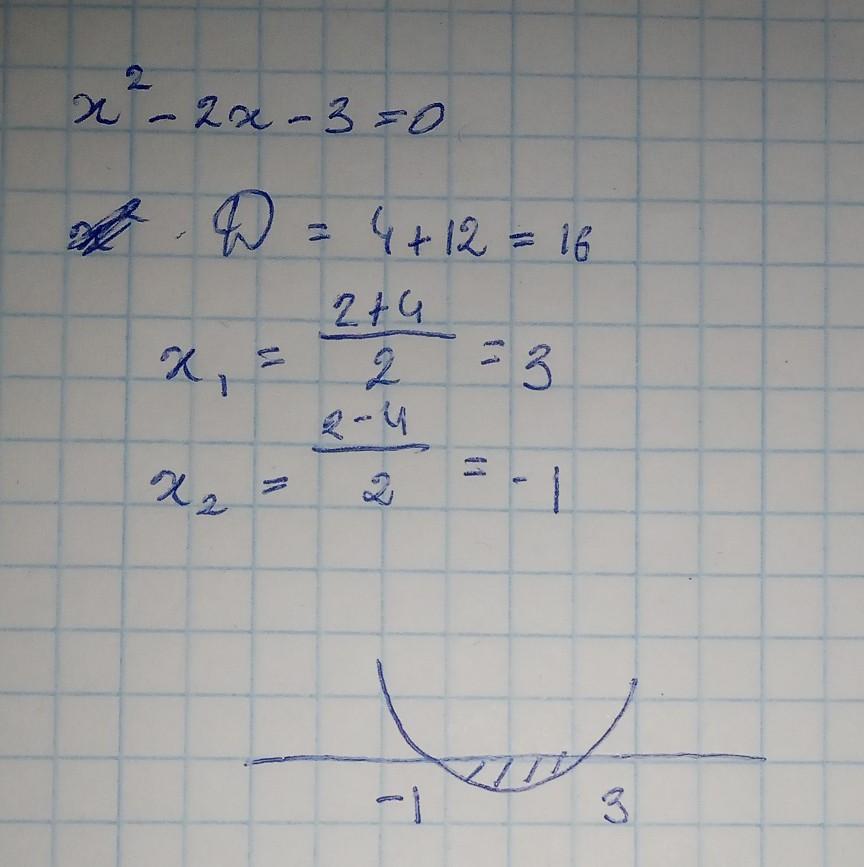 x² - 2x - 3 = 0
D = 4 + 12 = 16
x₁ = (2+4)/2 = 3
x₂ = (2-4)/2 = -1
-1 3